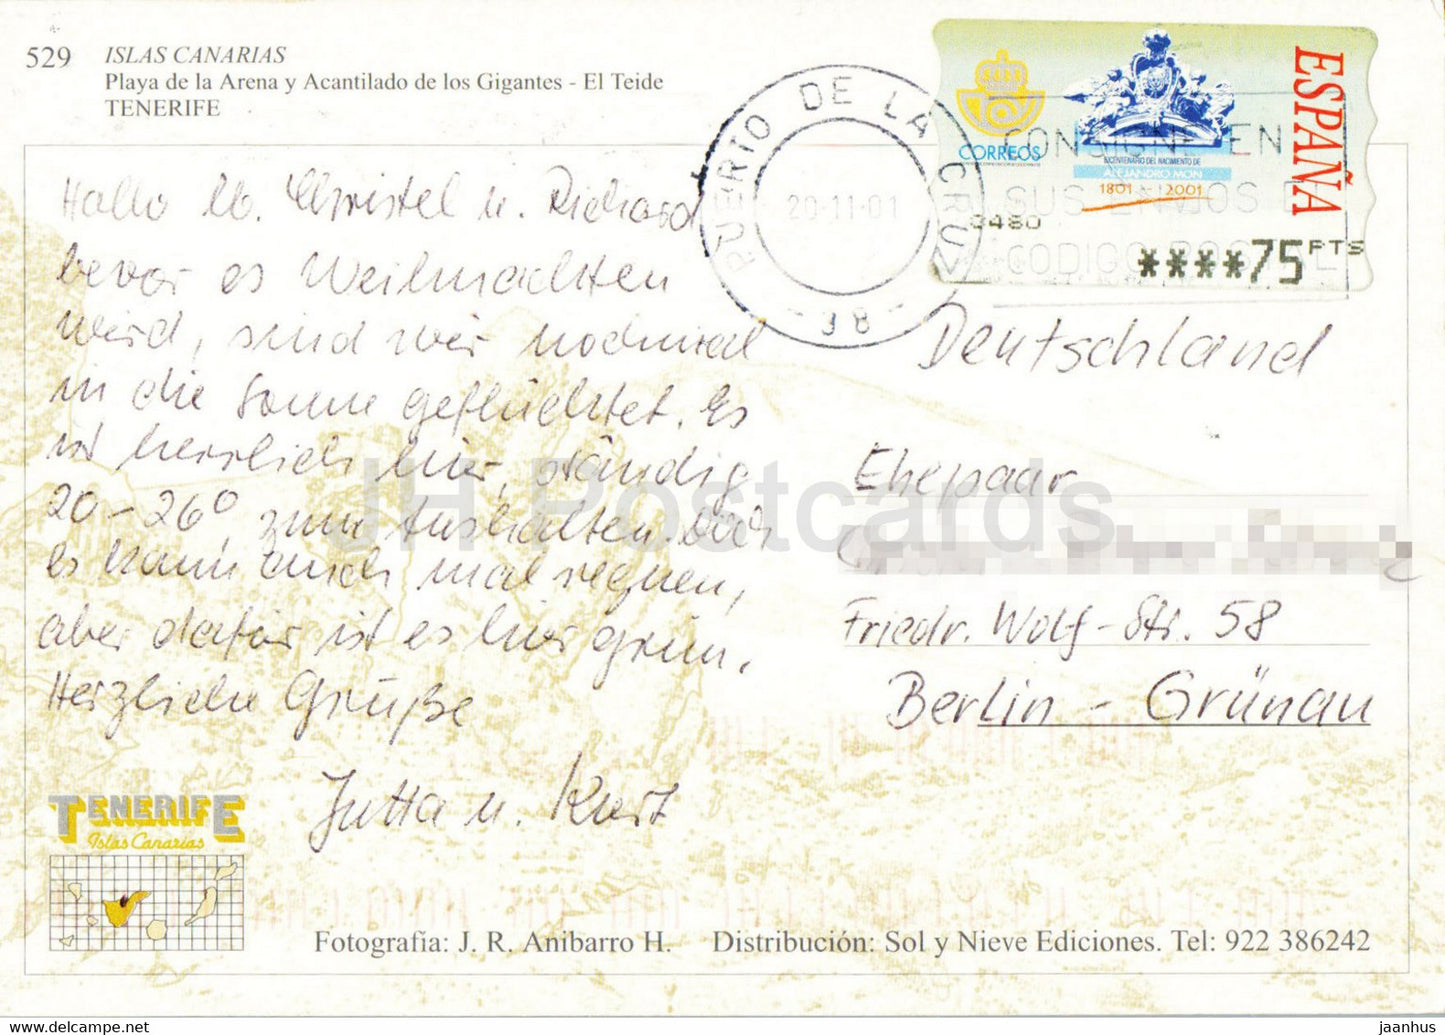 529 ISLAS CANARIAS
Playa de la Arena y Acantilado de los Gigantes - El Teide
TENERIFE
Hallo lb. Christel u. Richard
bevor es Weihnachten
wird, sind wir nochmal
in die Sonne geflüchtet. Es
ist herrlich hier, ständig
20-26° zum Aushalten.
Es kann auch mal regnen,
aber dafür ist es hier grün.
Herzliche Grüße
Jutta u. Kurt
PUERTO DE LA CRUZ
20-11-01
-38-
CORREOS
ESPAÑA
BICENTENARIO DEL NACIMIENTO DE
ALEJANDRO MON
1801 - 2001
CONSIGNE EN
SUS ENVIOS
CODIGO POSTAL
3480
****75 PTS
Deutschland
Ehepaar
Friedr. Wolf-Str. 58
Berlin - Grünau
JH Postcards
TENERIFE
Islas Canarias
Fotografia: J. R. Anibarro H. Distribución: Sol y Nieve Ediciones. Tel: 922 386242
jaanhus